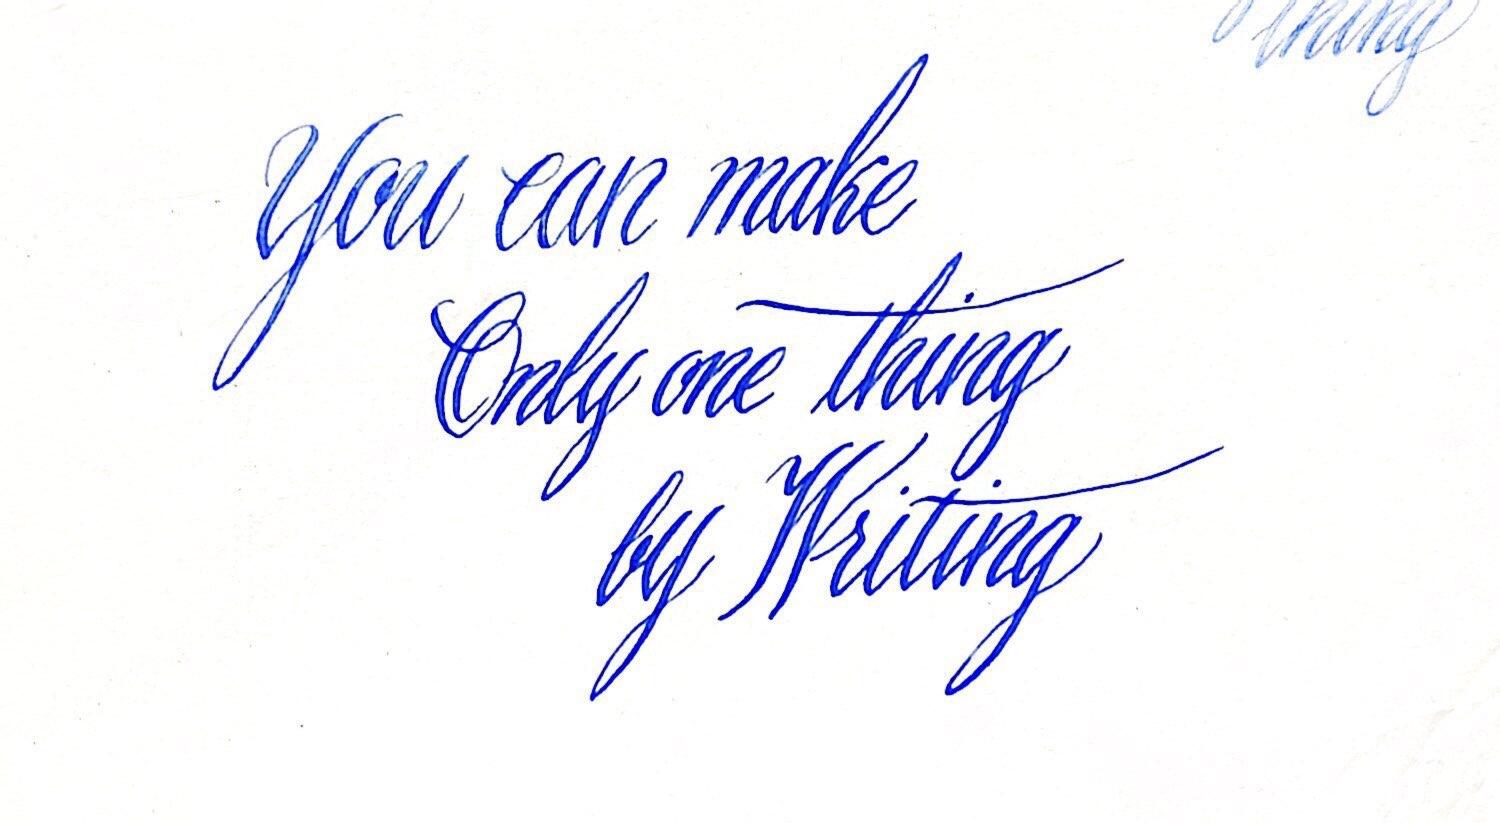 thing
You can make
Only one thing
by Writing